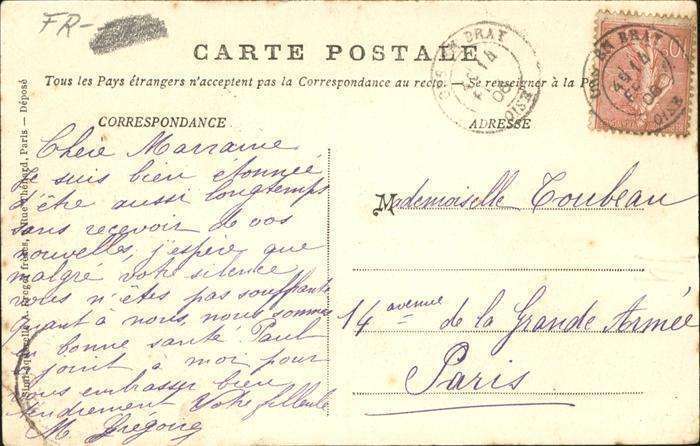 FR-
CARTE POSTALE
Tous les Pays étrangers n'acceptent pas la Correspondance au recto. Se renseigner à la
CORRESPONDANCE
ADRESSE
Chère Marraine
Je suis bien étonnée
d'être aussi longtemps
sans recevoir de vos
nouvelles, j'espère que
malgré votre silence
vous n'êtes pas souffrante
quant à nous, nous sommes
en bonne santé Paul
joint à moi pour
vous embrasser bien
tendrement Votre filleule
M. Grégoire
Mademoiselle Toubeau
14 avenue de la Grande Armée
Paris
frères, Paris — Déposé
OISE
OISE